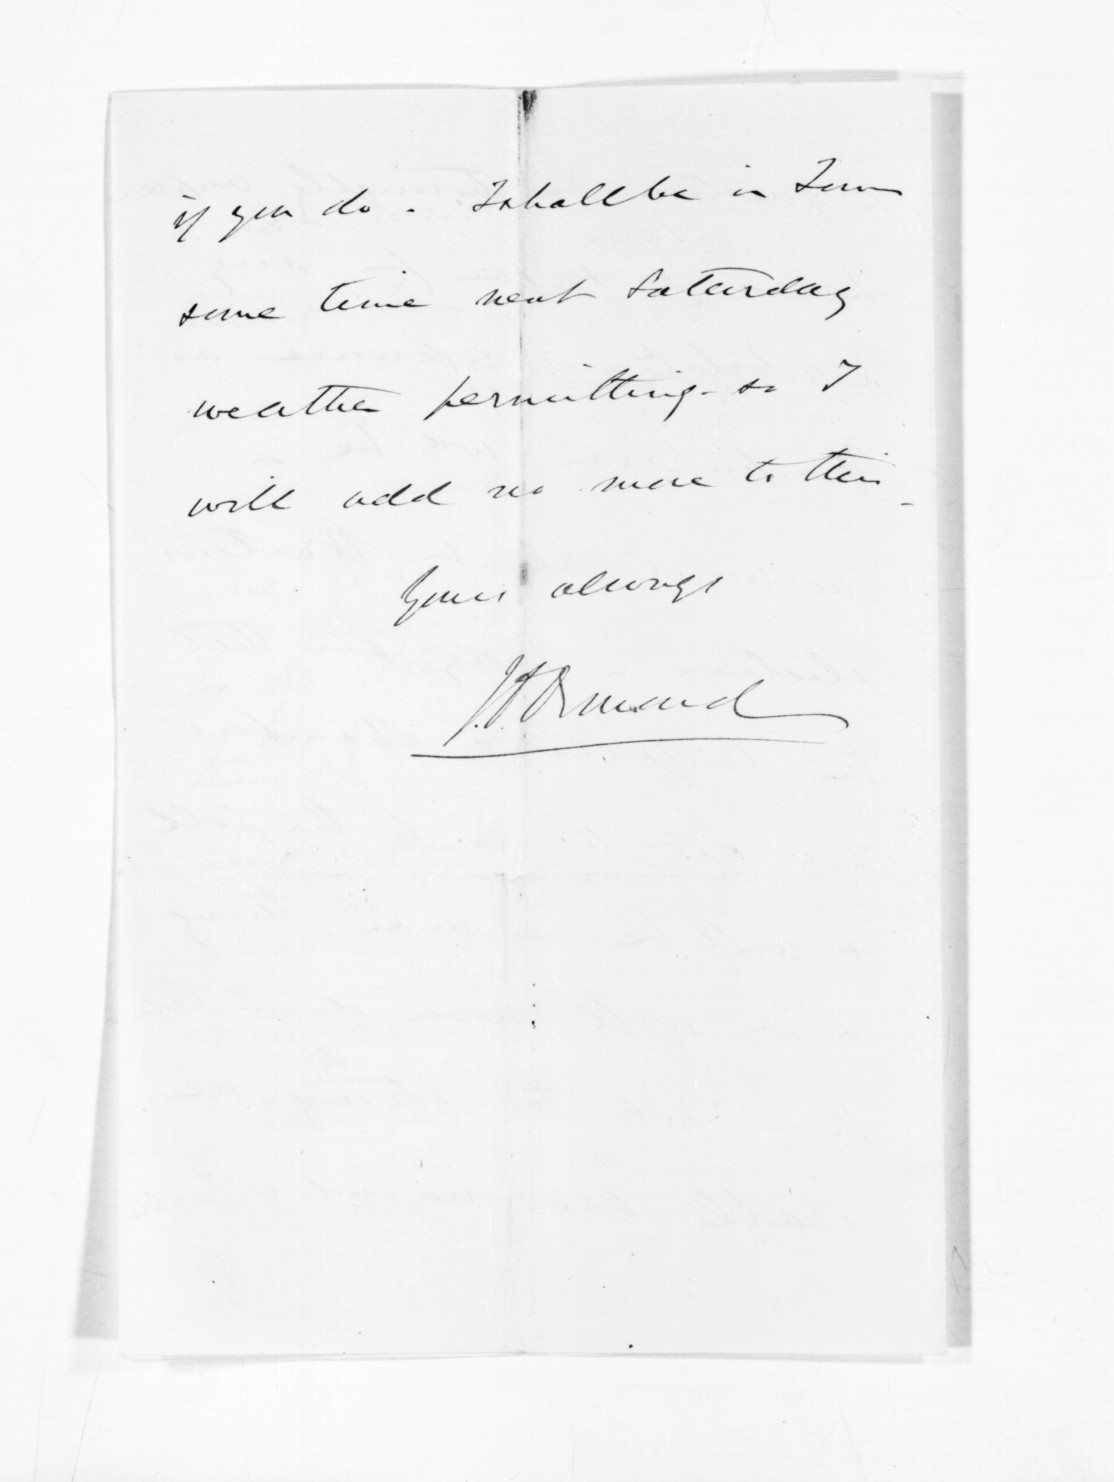 if you do. I shall be in Town
some time next Saturday
weather permitting - so I
will add no more to this -
Yours always
J.D. Ormond